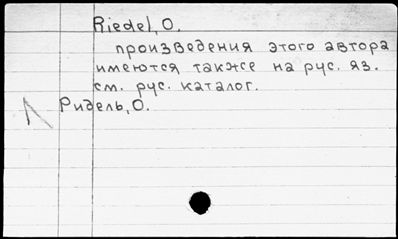 Riedel, O.
произведения этого автора
имеются также на рус. яз.
см. рус. каталог.
Ридель, О.